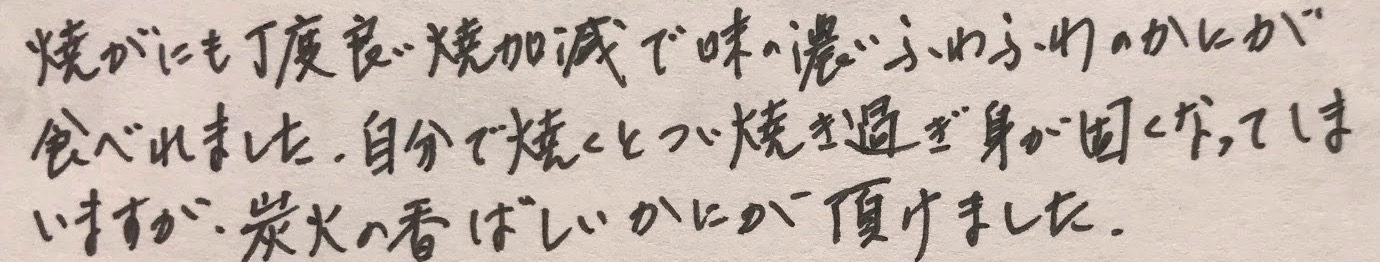 焼がにも丁度良い焼加減で味の濃いふわふわのかにが
食べれました。自分で焼くとつい焼き過ぎ身が固くなってしま
いますが、炭火の香ばしいかにが頂けました。